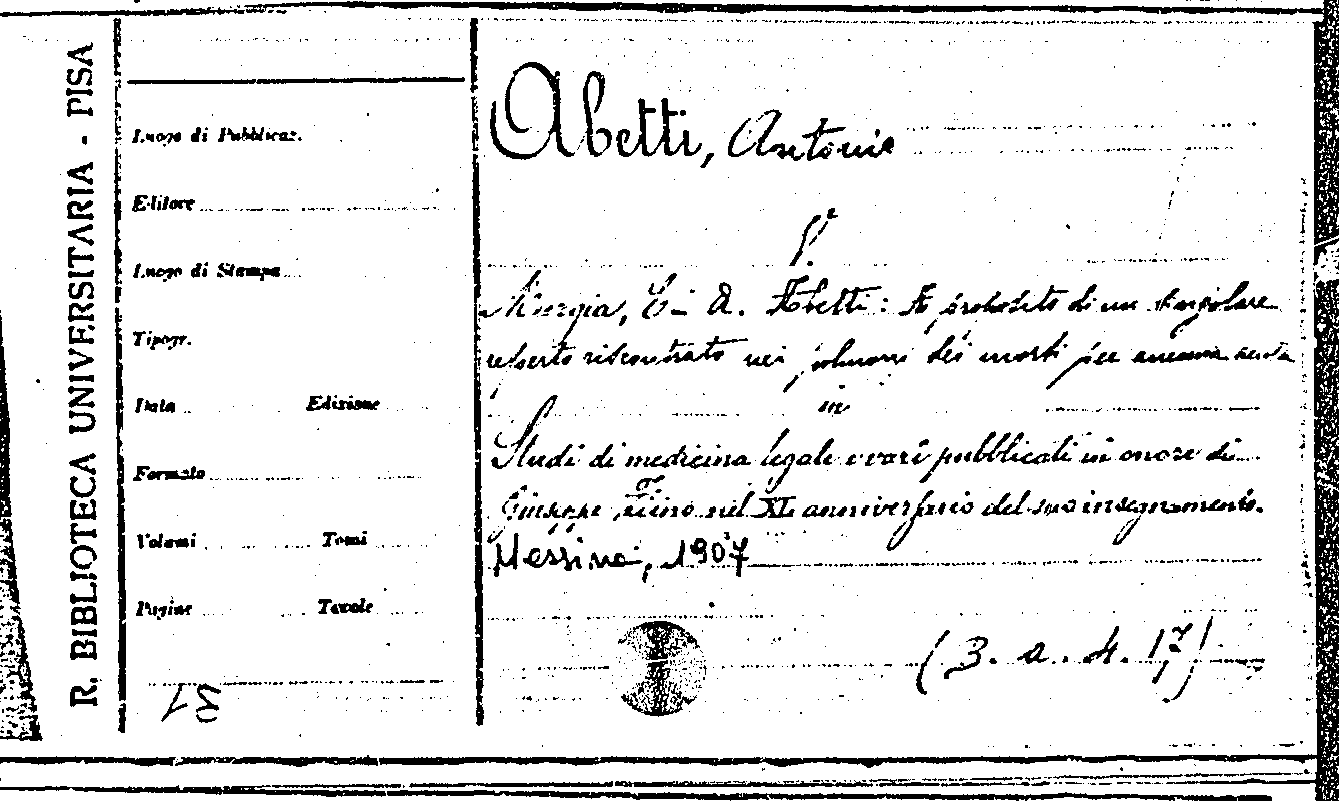 R. BIBLIOTECA UNIVERSITARIA - PISA
Luogo di Pubblicaz.
Editore
Luogo di Stampa
Tipogr.
Data Edizione
Formato
Volumi Tomi
Pagine Tavole
Abetti, Antonio
Murgia, E. A. Abetti: A proposito di un singolare
reperto riscontrato nei polmoni dei morti per anemia acuta
in
Studi di medicina legale e varî pubblicati in onore di
Giuseppe nel XL anniversario del suo insegnamento.
Messina, 1907
(3. a. 4. 17)